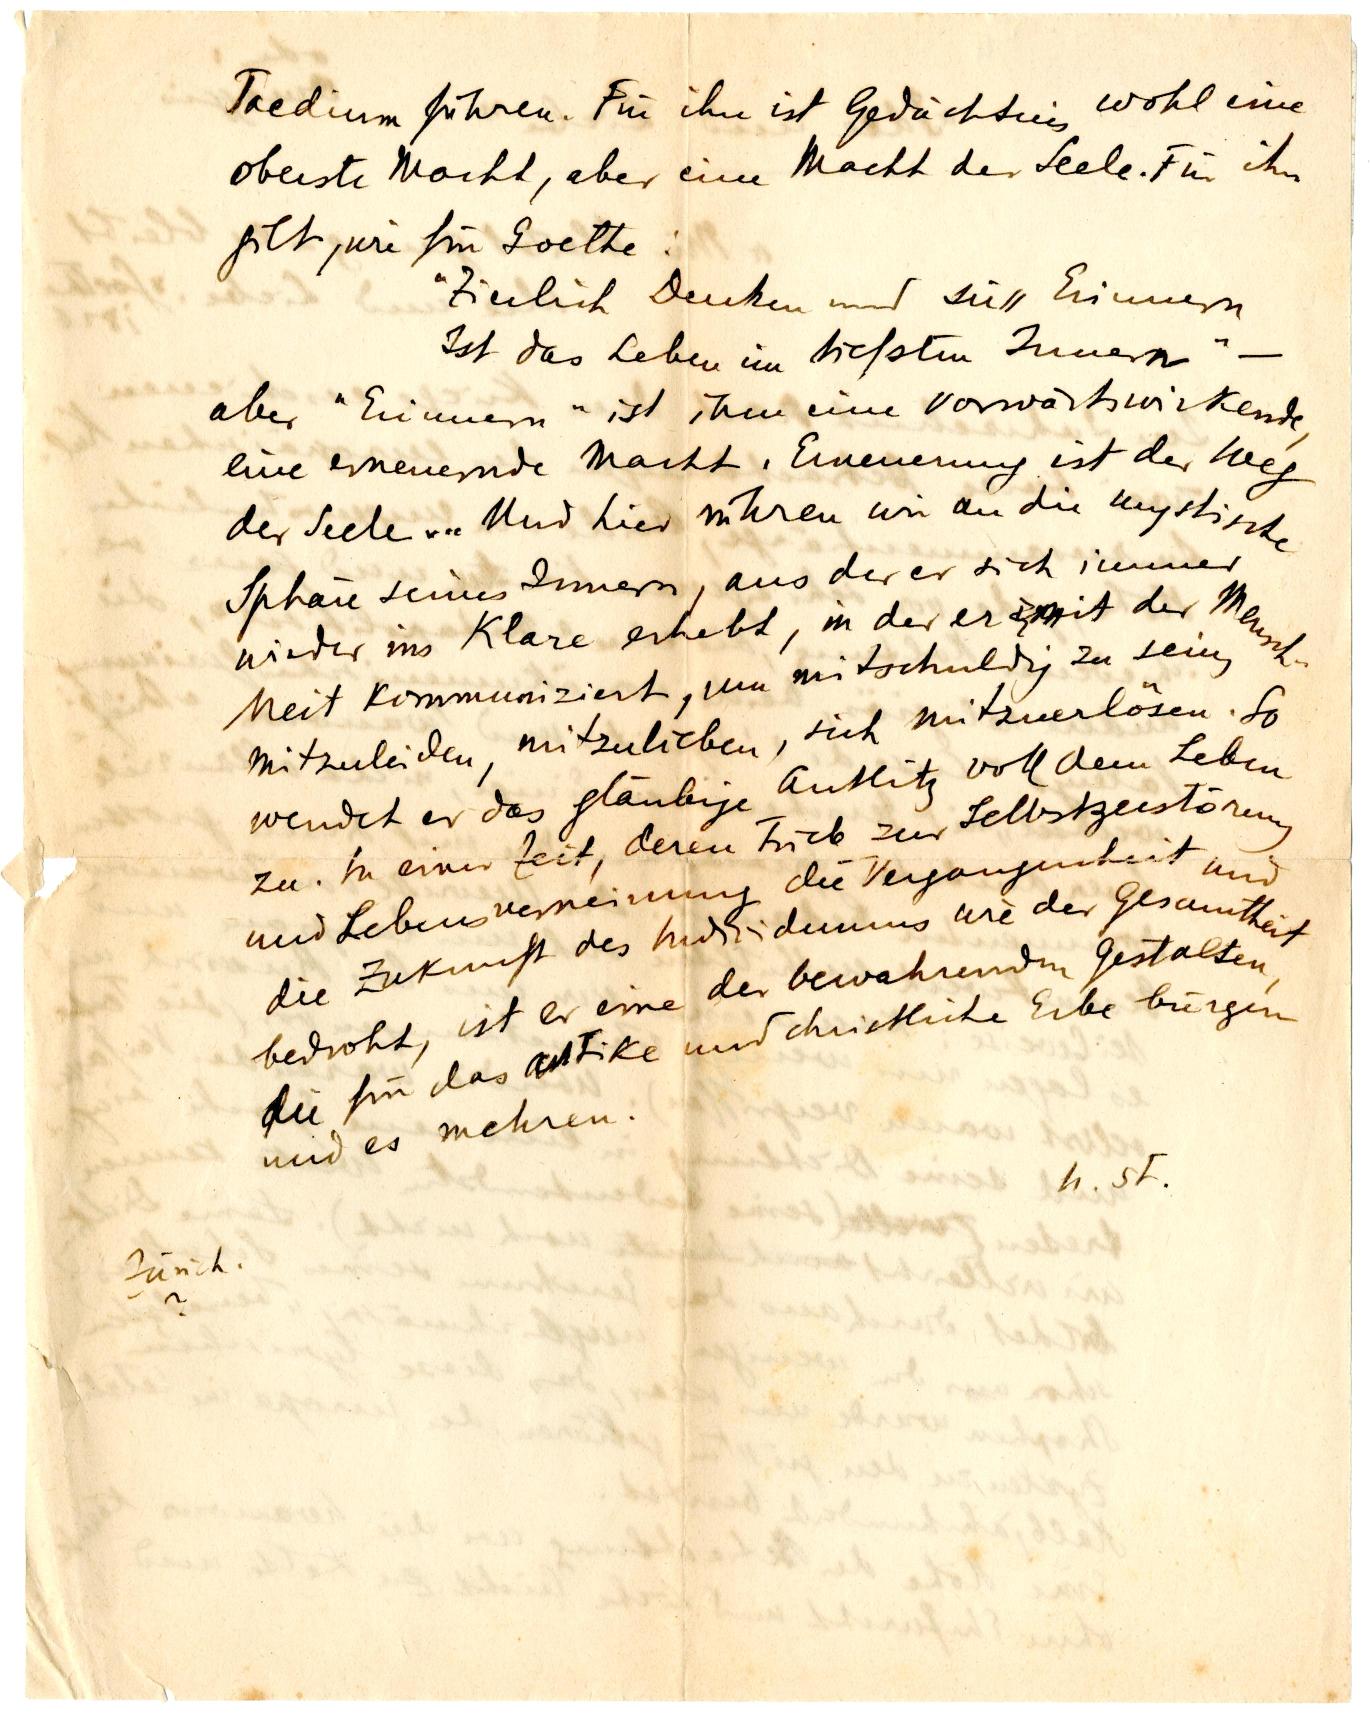 Taedium führen. Für ihn ist Gedächtnis wohl eine
oberste Macht, aber eine Macht der Seele. Für ihn
gilt, wie für Goethe:
"Zierlich Denken und süss Erinnern
Ist das Leben im tiefsten Innern" —
aber "Erinnern" ist ihm eine vorwärtswirkende,
eine erneuernde Macht. Erneuerung ist der Weg
der Seele... Und hier rühren wir an die mystische
Sphäre seines Innern, aus der er sich immer
wieder ins Klare erhebt, in der er mit der Mensch-
heit kommuniziert, um mitschuldig zu sein,
mitzuleiden, mitzulieben, sich mitzuerlösen. So
wendet er das gläubige Antlitz voll dem Leben
zu. In einer Zeit, deren Trieb zur Selbstzerstörung
und Lebensverneinung die Vergangenheit und
die Zukunft des Individuums wie der Gesamtheit
bedroht, ist er eine der bewahrenden Gestalten,
die für das antike und christliche Erbe bürgen
und es mehren.
h. st.
Zürich.
?